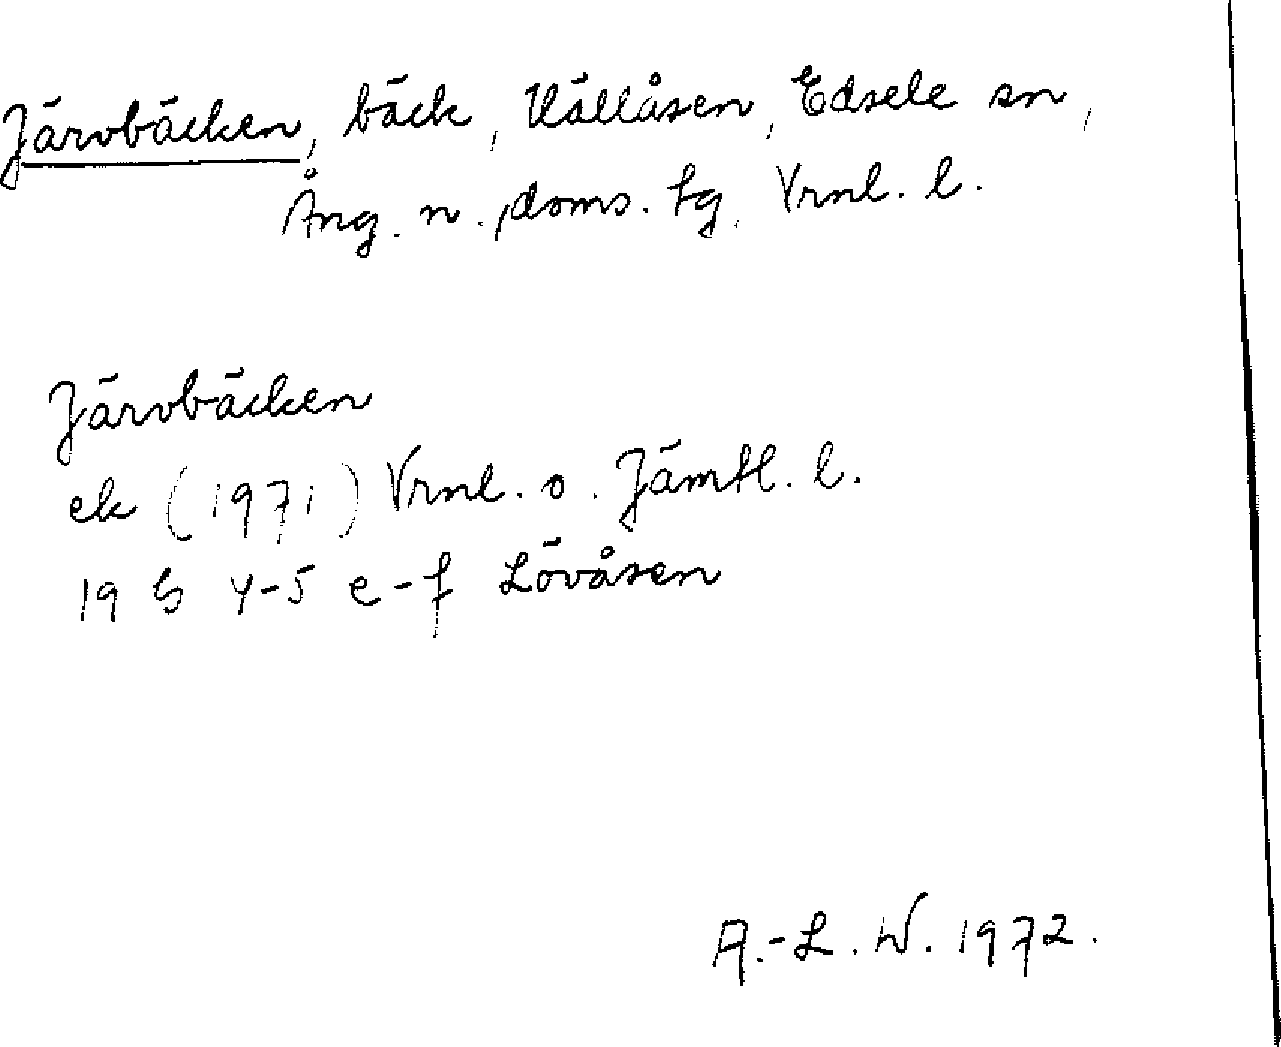 Järvbäcken, bäck, Källåsen, Edsele sn,
Ång. n. doms. tg. Vrnl. l.
Järvbäcken
ek (1971) Vrnl. o. Jämtl. l.
19 G 4-5 e-f Lövåsen
A.-L. W. 1972.